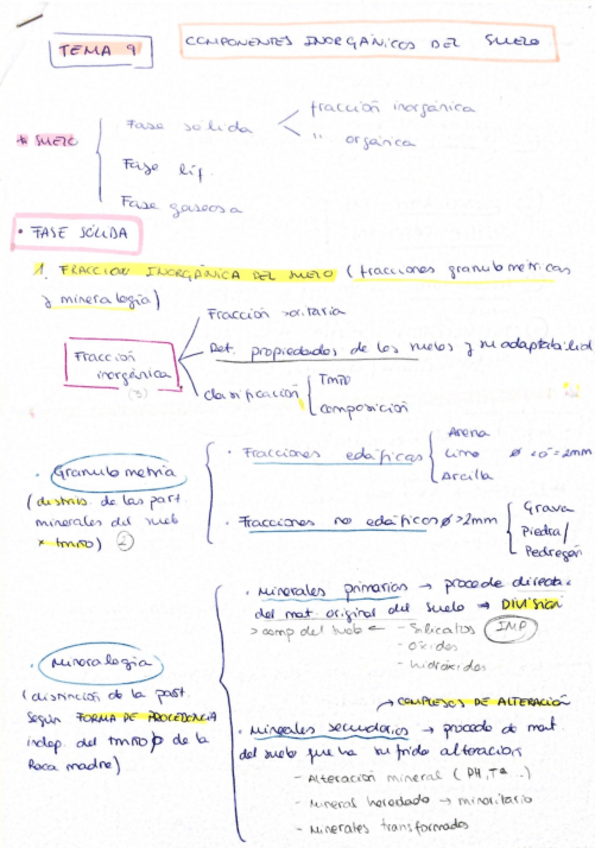 TEMA 9
COMPONENTES INORGÁNICOS DEL SUELO
* SUELO
Fase sólida
fracción inorgánica
" orgánica
Fase líq.
Fase gaseosa
• FASE SÓLIDA
1. FRACCIÓN INORGÁNICA DEL SUELO (fracciones granulométricas
y mineralogía)
Fracción inorgánica
(3)
Fracción >oritaria
Det. propiedades de los suelos y su adaptabilidad
clasificación
Tmño
composición
• Granulometría
(distrib. de las part.
minerales del suelo
x tmño) (2)
• Fracciones edáficas
Arena
Limo
Arcilla
ø < o = 2mm
• Fracciones no edáficas ø>2mm
Grava
Piedra/
Pedregón
• Mineralogía
(distinción de la part.
según FORMA DE PROCEDENCIA
indep. del tmño o de la
Roca madre)
• Minerales primarios → procede directa
del mat. original del suelo → DIVISIÓN
> comp del suelo ← - Silicatos IMP
- óxidos
- hidróxidos
→ COMPLEJOS DE ALTERACIÓN
• Minerales secundarios → procede de mat.
del suelo que ha sufrido alteración
- Alteración mineral (PH, Tª ..)
- Mineral heredado → minoritario
- Minerales transformados